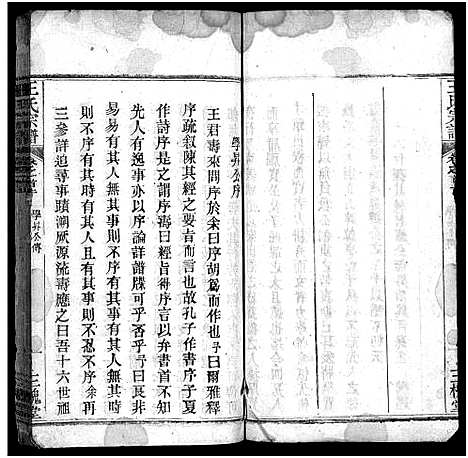 王氏宗譜
卷之首
三槐堂
學昇公序
王君壽來問序於余曰序胡為而作也予曰爾雅釋
序疏敘陳其經之要旨而言也故孔子作書序子夏
作詩序是之謂序壽曰經旨得序言以弁書首不知
先人有逸事亦以序論詳譜牒可乎否乎予曰艮非
易易有其人無其事則不序有其事有其人無其時
則不序有其時有其人且有其事則不忍不序余再
三參詳追尋事蹟溯厥源流壽應之曰吾十六世祖
王氏宗譜
學昇公傳
三槐堂